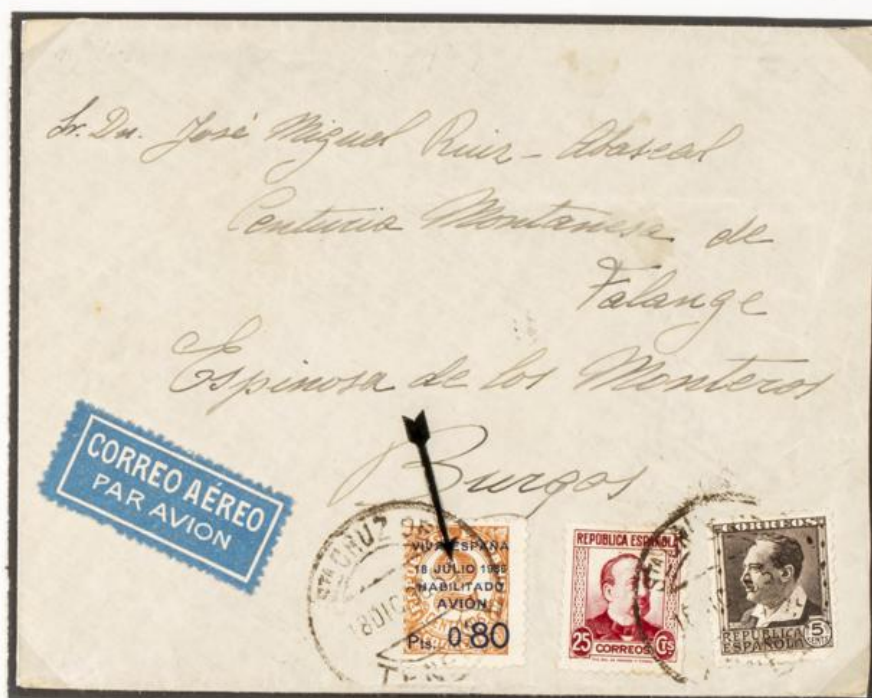 Sr. Dn. José Miguel Ruiz-Abascal
Centuria Montanesa de
Falange
Espinosa de los Monteros
Burgos
CORREO AÉREO
PAR AVION
STA CRUZ DE
18 DIC
TENE
VIVA ESPAÑA
18 JULIO 1936
HABILITADO
AVIÓN
Pts. 0'80
REPÚBLICA ESPAÑOLA
25 CORREOS CTS
STA
CORREOS
REPÚBLICA
ESPAÑOLA
5
CENTS